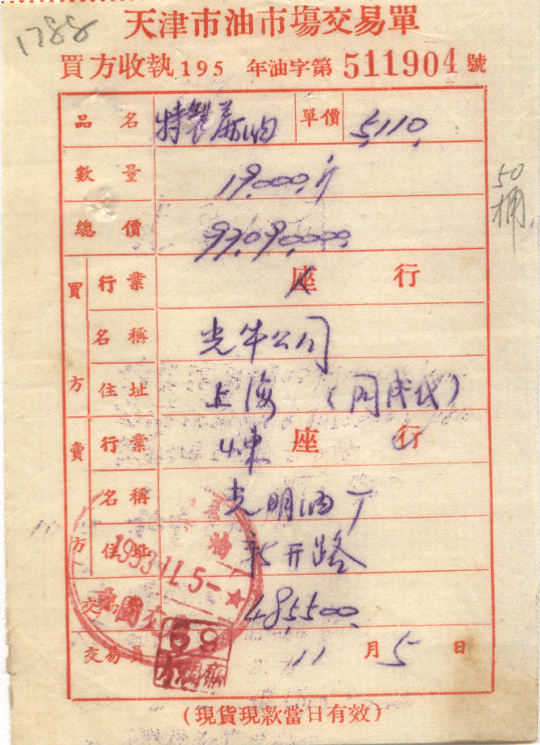 1788
天津市油市場交易單
買方收執195 年油字第 511904 號
品名 特製麻油 單價 5,110.
數量 19,000斤
總價 97,090,000.
50桶
買方 行業 座 行
名稱 光华公司
住址 上海 (同成代)
賣方 行業 座 行
名稱 光明油厂
住址 新开路
1953.11.5
485,500
交易員 11 月 5 日
59
(現貨現款當日有效)